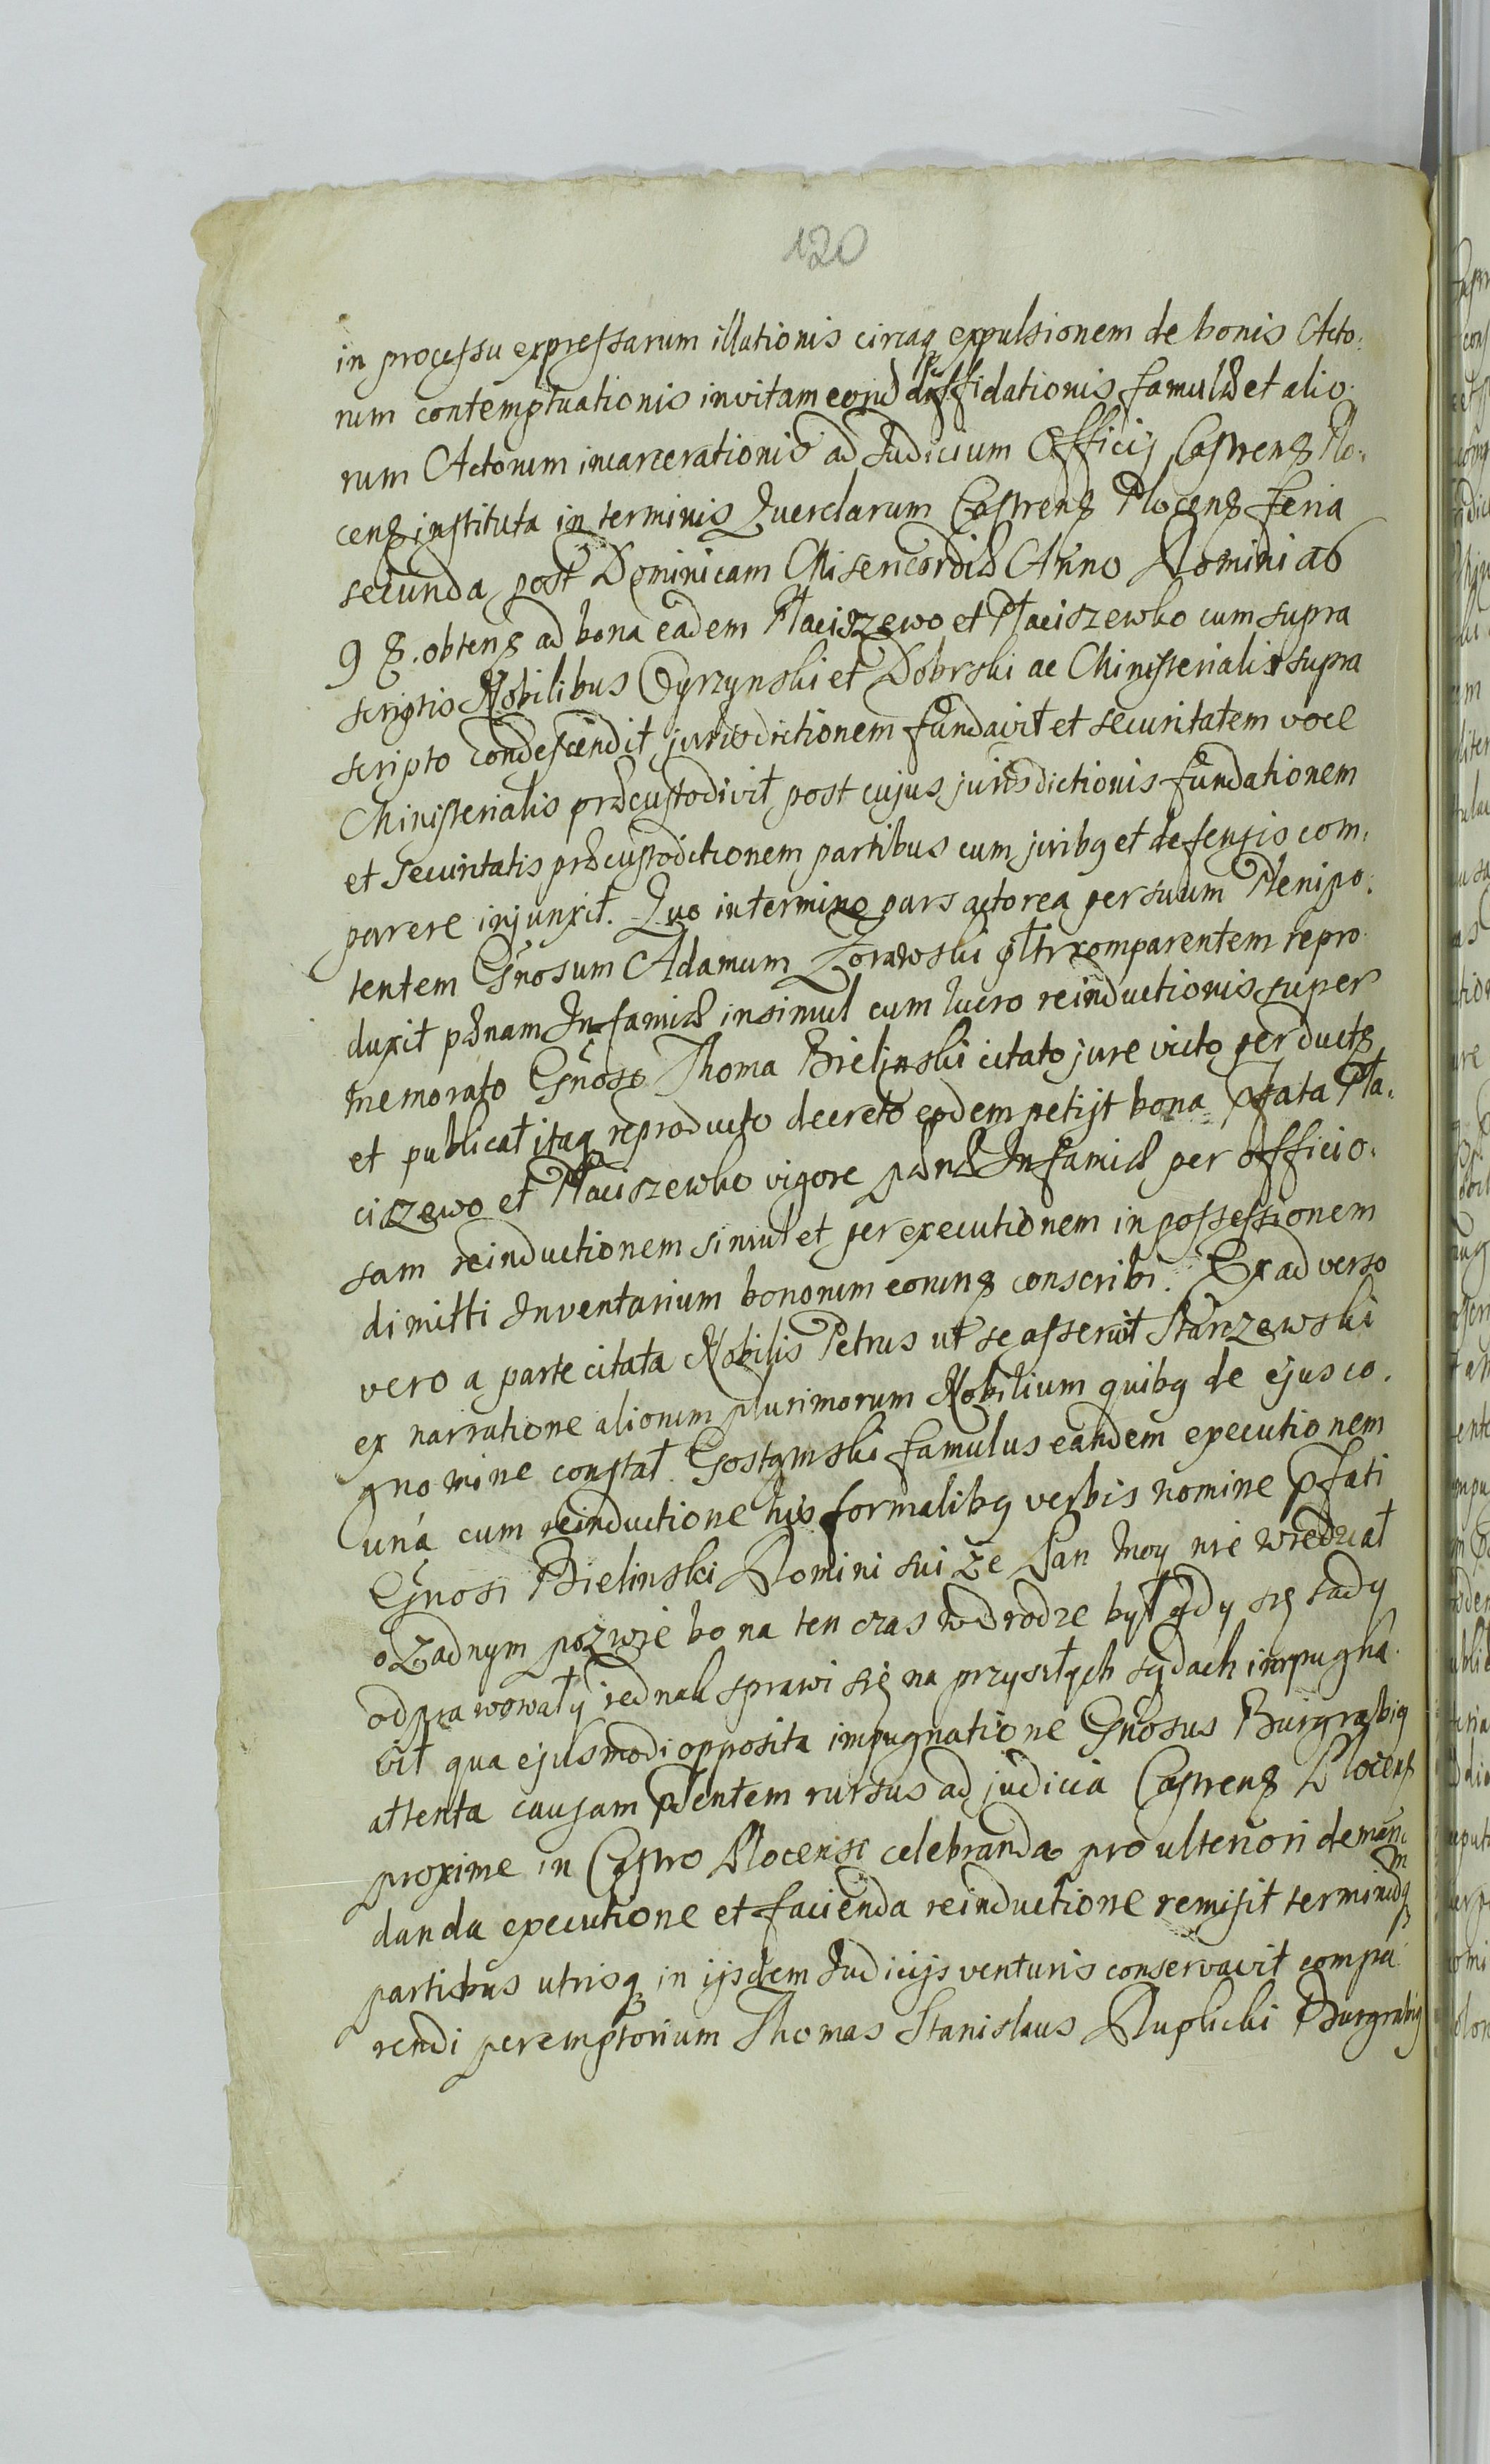 120
in processu expressarum illationis circaq expulsionem de bonis Acto:
rum contemptuationis invitam eorud diffidationis famulæ et alio.
rum Actorum incarcerationis ad Judicium Officij Castrens Plo:
cens instituta in terminis Querelarum Castrens Plocens feria
secunda post Dominicam Misericordiæ Anno Domini a6
98. obtens ad bona eadem Płaciszewo et Płaciszewko cum supra
scriptis Nobilibus Cyrzynski et Dobrski ac Ministerialis supra
scripto condescendit jurisdictionem fundavit et securitatem voce
Ministerialis præcustodivit post cujus jurisdictionis fundationem
et securitatis præcustoditionem partibus cum juribq et defensis com:
parere injunxit. Quo in termino pars actorea per suum Plenipo:
tentem Gnosum Adamum Zorawski pltr comparentem repro
duxit pænam Infamiæ insimul cum lucro reinductionis super
memorato Gnoso Thoma Bielinski citato jure victo per ducts
et publicat itaq reproducto decreto eodem petijt bona pfata Pła:
ciszewo et Płaciszewko vigore pænæ Infamiæ per officio:
sam reinductionem simul et per executionem in possessionem
dimitti Inventarium bonorum eorums conscribi. Ex adverso
vero a parte citata Nobilis Petrus ut se asseruit Starzewski
ex narratione aliorum plurimorum Nobilium quibq de ejus co.
gnomine constat Gostomski famulus eandem executionem
una cum reinductione his formalibq verbis nomine pfati
Gnosi Bielinski Domini sui że Pan moy nie wiedział
o żadnym pozwie bo na ten czas w drodze był gdy się sądy
odprawowały jednak sprawi się na przyszłych sądach impugna
vit qua ejusmodi opposita impugnatione Gnosus Burgrabiq
attenta causam pdentem rursus ad judicia Castrens Plocens
proxime in Castro Plocensi celebranda pro ulteriori deman
danda executione et facienda reinductione remisit terminumq
partibus utrisq in ijsdem Judicijs venturis conservavit compa
rendi peremptorium Thomas Stanislaus Ruplicki Burgrabiq